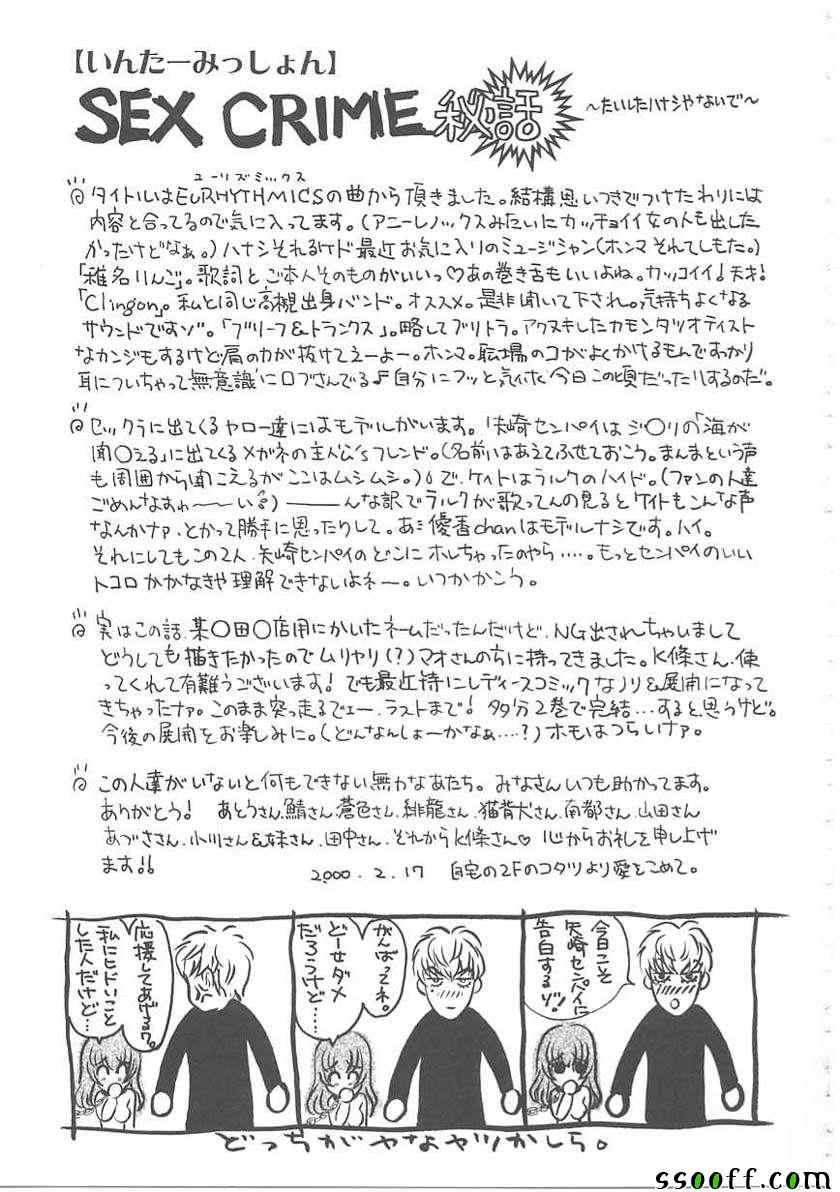 【いんたーみっしょん】
SEX CRIME 秘話 〜たいしたハナシやないで〜
ユーリズミックス
タイトルはEURHYTHMICSの曲から頂きました。結構思いつきでつけたわりには
内容と合ってるので気に入ってます。(アニーレノックスみたいにカッチョイイ女の人も出した
かったけどなぁ。)ハナシそれるケド最近お気に入りのミュージシャン(ホンマそれてしもた。)
「椎名りんご」。歌詞とご本人そのものがいいっ♡あの巻き舌もいいよね。カッコイイ!天才!
「Clingon」。私と同じ高槻出身バンド。オススメ。是非聞いて下され。気持ちよくなる
サウンドですゾ。「ブリーフ&トランクス」。略してブリトラ。アクヌキしたカモンタツオテイスト
なカンジもするけど肩の力が抜けてえーよー。ホンマ。職場のコがよくかけるもんですっかり
耳についちゃって無意識に口ずさんでる♪自分にフッと気付く今日この頃だったりするのだ。
セックラに出てくるヤロー達にはモデルがいます。矢崎センパイはジ〇リの「海が
聞〇える」に出てくるメガネの主人公'sフレンド。(名前はあえてふせておこう。まんまという声
も周囲から聞こえるがここはムシムシ。)で、ケイトはラルクのハイド。(ファンの人達
ごめんなすゎ〜〜い)―――んな訳でラルクが歌ってんの見るとケイトもこんな声
なんかナァ、とかって勝手に思ったりして。あ、優香chanはモデルナシです。ハイ。
それにしてもこの2人、矢崎センパイのどこにホレちゃったのやら……。もっとセンパイのいい
トコロかかなきゃ理解できないよネー。いつかかこう。
実はこの話、某〇田〇店用にかいたネームだったんだけど、NG出されちゃいまして
どうしても描きたかったのでムリヤリ(?)マオさんのちに持ってきました。K條さん、使
ってくれて有難うございます!でも最近特にレディースコミックなノリ&展開になって
きちゃったナァ。このまま突っ走るでェー、ラストまで!多分2巻で完結…すると思うけど。
今後の展開をお楽しみに。(どんなんしょーかなぁ…?)ホモはつらいナァ。
この人達がいないと何もできない無力なあたち。みなさんいつも助かってます。
ありがとう! あとうさん、鯖さん、蒼色さん、緋龍さん、猫背犬さん、南都さん、山田さん
あづささん、小川さん&妹さん、田中さん、それからK條さん♡ 心からお礼を申し上げ
ます!!
2000.2.17 自宅の2Fのコタツより愛をこめて。
今日こそ
矢崎センパイに
告白するゾ!
がんばってネ。
どーせダメ
だろうけど…
応援してあげるワ。
私にヒドいこと
した人だけど…
どっちがヤなヤツかしら。
ssooff.com